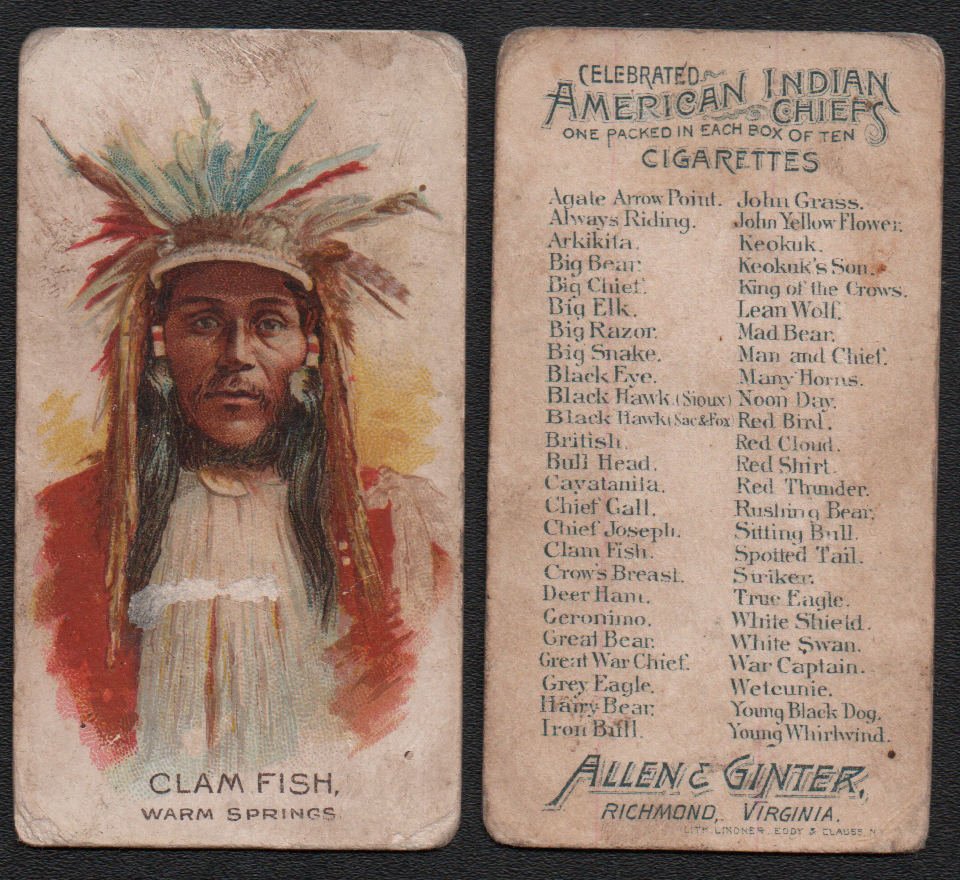 CLAM FISH,
WARM SPRINGS
CELEBRATED
AMERICAN INDIAN
CHIEFS
ONE PACKED IN EACH BOX OF TEN
CIGARETTES
Agate Arrow Point.
Always Riding.
Arkikita.
Big Bear.
Big Chief.
Big Elk.
Big Razor.
Big Snake.
Black Eye.
Black Hawk.(Sioux)
Black Hawk(Sac&Fox)
British.
Bull Head.
Cayatanita.
Chief Gall.
Chief Joseph.
Clam Fish.
Crow's Breast.
Deer Ham.
Geronimo.
Great Bear.
Great War Chief.
Grey Eagle.
Hairy Bear.
Iron Bull.
John Grass.
John Yellow Flower.
Keokuk.
Keokuk's Son.
King of the Crows.
Lean Wolf.
Mad Bear.
Man and Chief.
Many Horns.
Noon Day.
Red Bird.
Red Cloud.
Red Shirt.
Red Thunder.
Rushing Bear.
Sitting Bull.
Spotted Tail.
Striker.
True Eagle.
White Shield.
White Swan.
War Captain.
Wetcunie.
Young Black Dog.
Young Whirlwind.
ALLEN & GINTER,
RICHMOND, VIRGINIA.
LITH. LINDNER, EDDY & CLAUSS, N.Y.